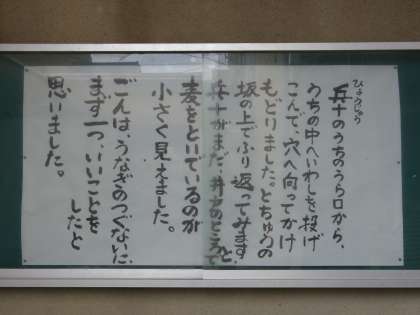 兵十のうちのうら口から、
ひょうじゅう
うちの中へいわしを投げ
こんで、穴へ向ってかけ
もどりました。とちゅうの
坂の上でふり返ってみますと
兵十がまだ、井戸のところで
麦をといでいるのが
小さく見えました。
ごんは、うなぎのつぐないに、
まず一つ、いいことを
したと
思いました。